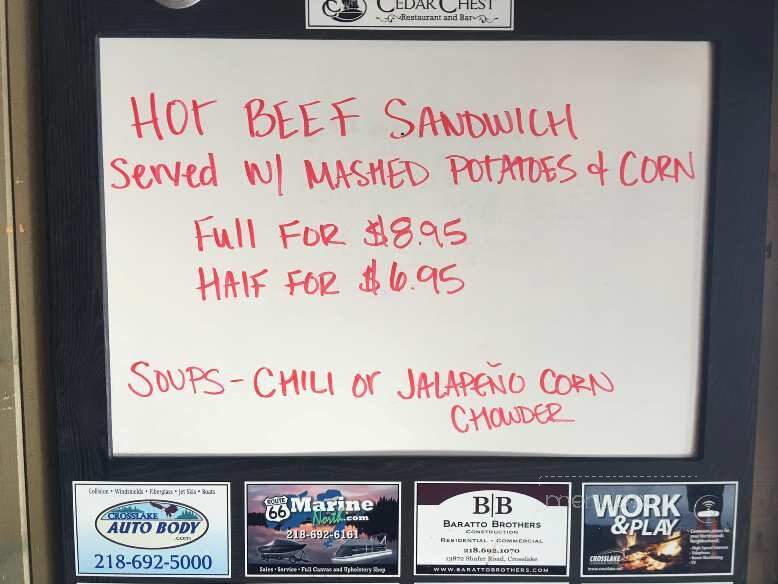 CEDAR CHEST
Restaurant and Bar
HOT BEEF SANDWICH
Served w/ MASHED POTATOES & CORN
Full FOR $8.95
HALF FOR $6.95
SOUPS - CHILI or JALAPEÑO CORN
CHOWDER
Collision • Windshields • Fiberglass • Jet Skis • Boats
CROSSLAKE
AUTO BODY
.com
218-692-5000
ROUTE
66 Marine
North.com
218-692-6161
Sales • Service • Full Canvas and Upholstery Shop
B|B
BARATTO BROTHERS
CONSTRUCTION
RESIDENTIAL • COMMERCIAL
218.692.1070
13872 Shafer Road, Crosslake
WWW.BARATTOBROTHERS.COM
WORK
&PLAY
CROSSLAKE